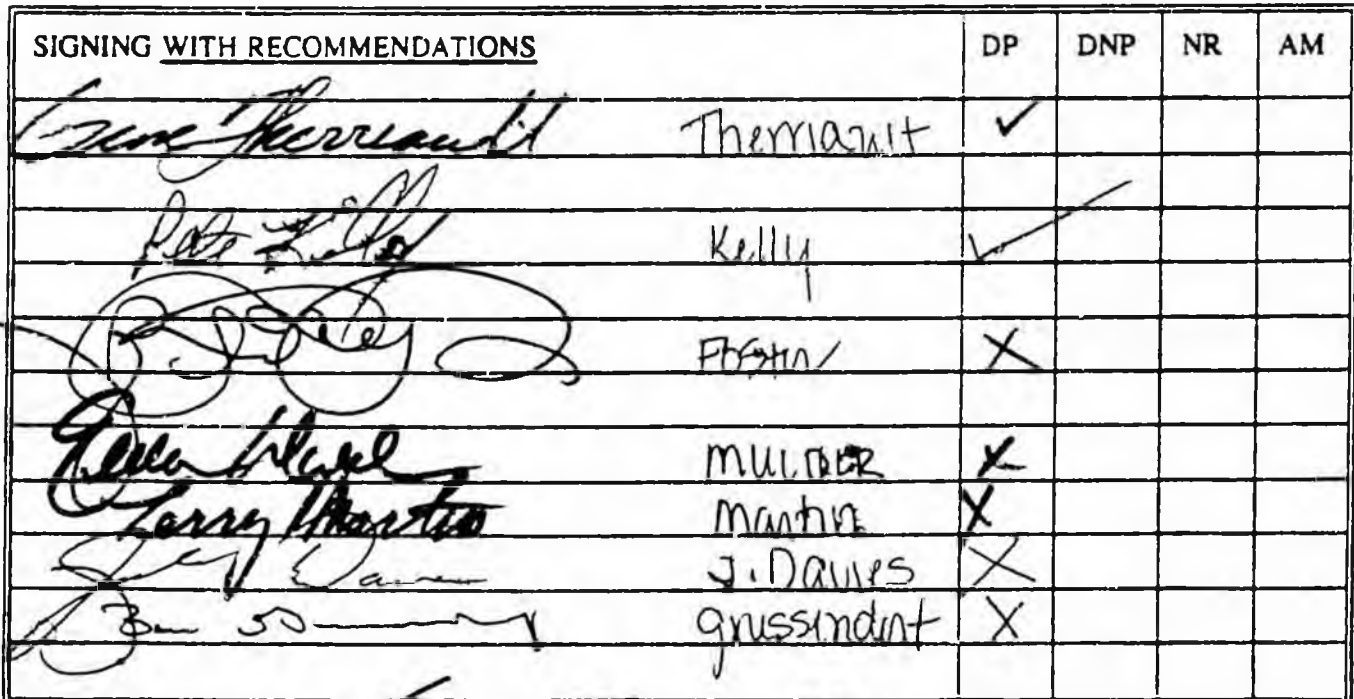 SIGNING WITH RECOMMENDATIONS DP DNP NR AM
Gene Therriault Therriault ✓
Pete Kelly Kelly ✓
Foster X
Mulder X
Larry Martin Martin X
J. Davies X
grussendorf X